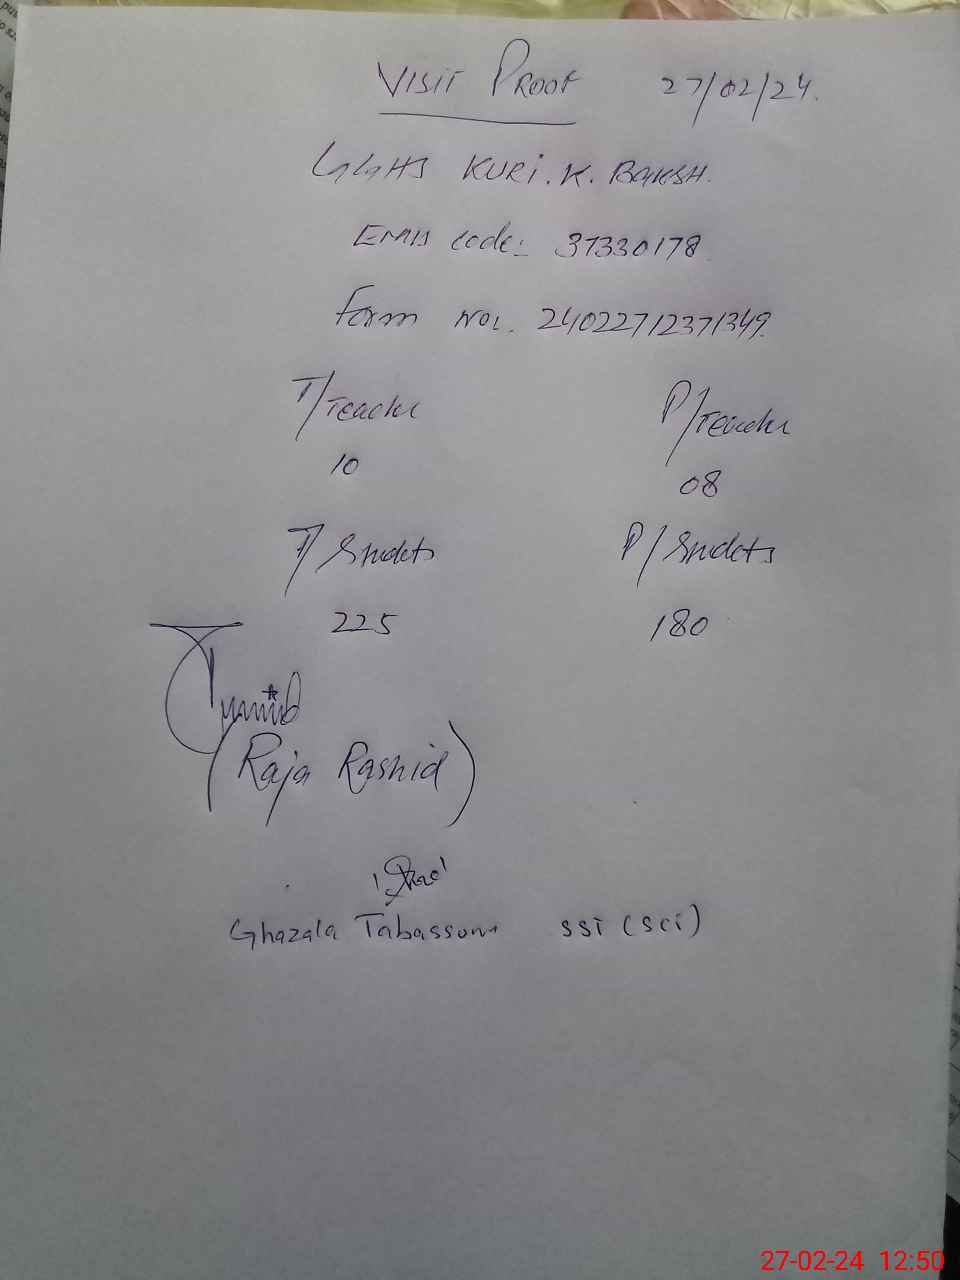 VISIT PROOF 27/02/24.
GGHS KURI. K. BAKSH.
EMIS code:- 37330178
Form No:. 24022712371349.
T/Teacher P/Teacher
10 08
T/Students P/Students
225 180
(Raja Rashid)
Ghazala Tabassum SST (Sci)
27-02-24 12:50